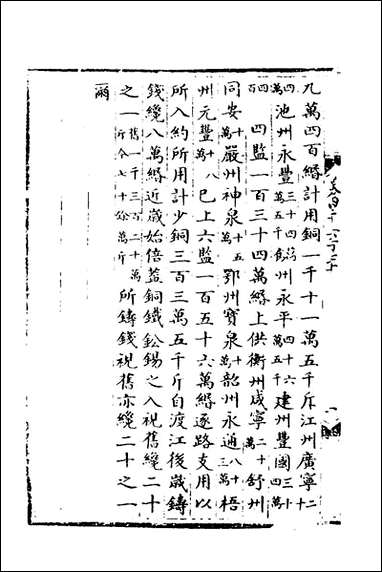 九萬四百緡計用銅一千十一萬五千斤江州廣寧二十
四萬池州永豐三十四萬五千饒州永平四十六萬五千建州豐國三十四萬
四百四監一百三十四萬緡上供衡州咸寧二十萬舒州
同安十萬嚴州神泉十五萬鄂州寶泉十萬韶州永通八十三萬梧
州元豐十八萬已上六監一百五十六萬緡逐路支用以
所入約所用計少銅三百三萬五千斤自渡江後歲鑄
錢纔八萬緡近歲始倍蓋銅鐵鈆錫之入視舊纔二十
之一舊一千三百二十萬斤今七十餘萬斤所鑄錢視舊亦纔二十之一
爾